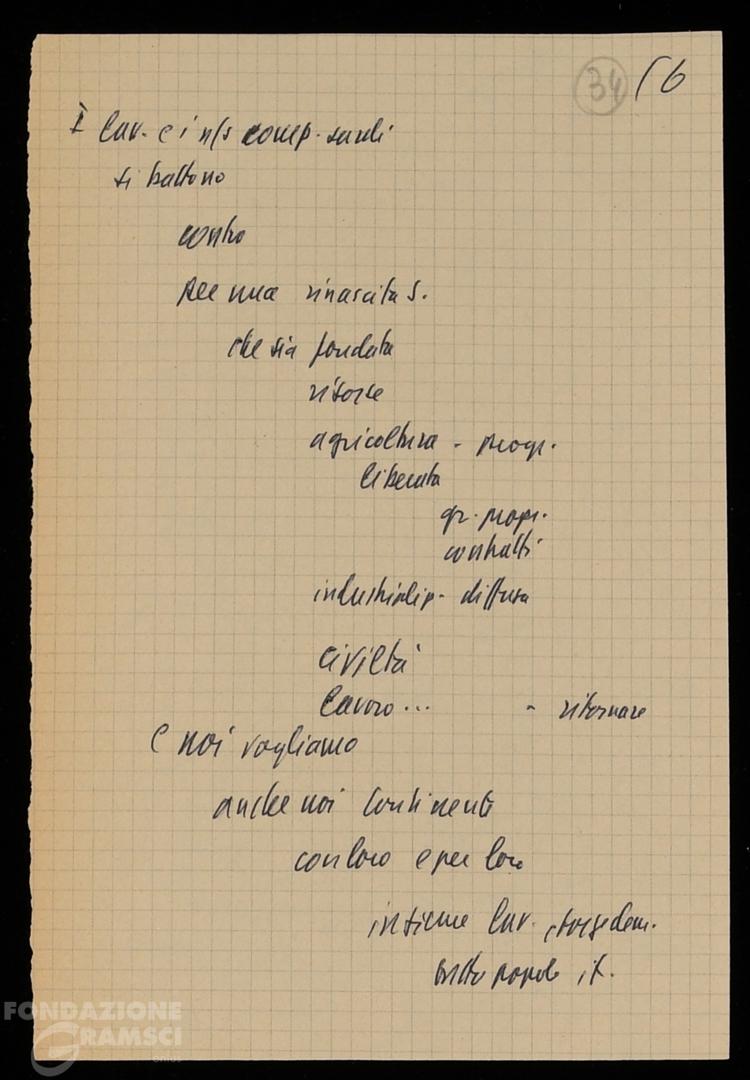 34 56
I lav. e i n/s comp. sardi
si battono
contro
per una rinascita S.
che sia fondata
risorse
agricoltura - progr.
liberata
gr. propr.
contratti
industrializ. diffusa
civiltà
lavoro... - ritornare
E noi vogliamo
anche noi continenti
con loro e per loro
insieme lav. forze dem.
tutto popolo it.
FONDAZIONE
GRAMSCI
onlus